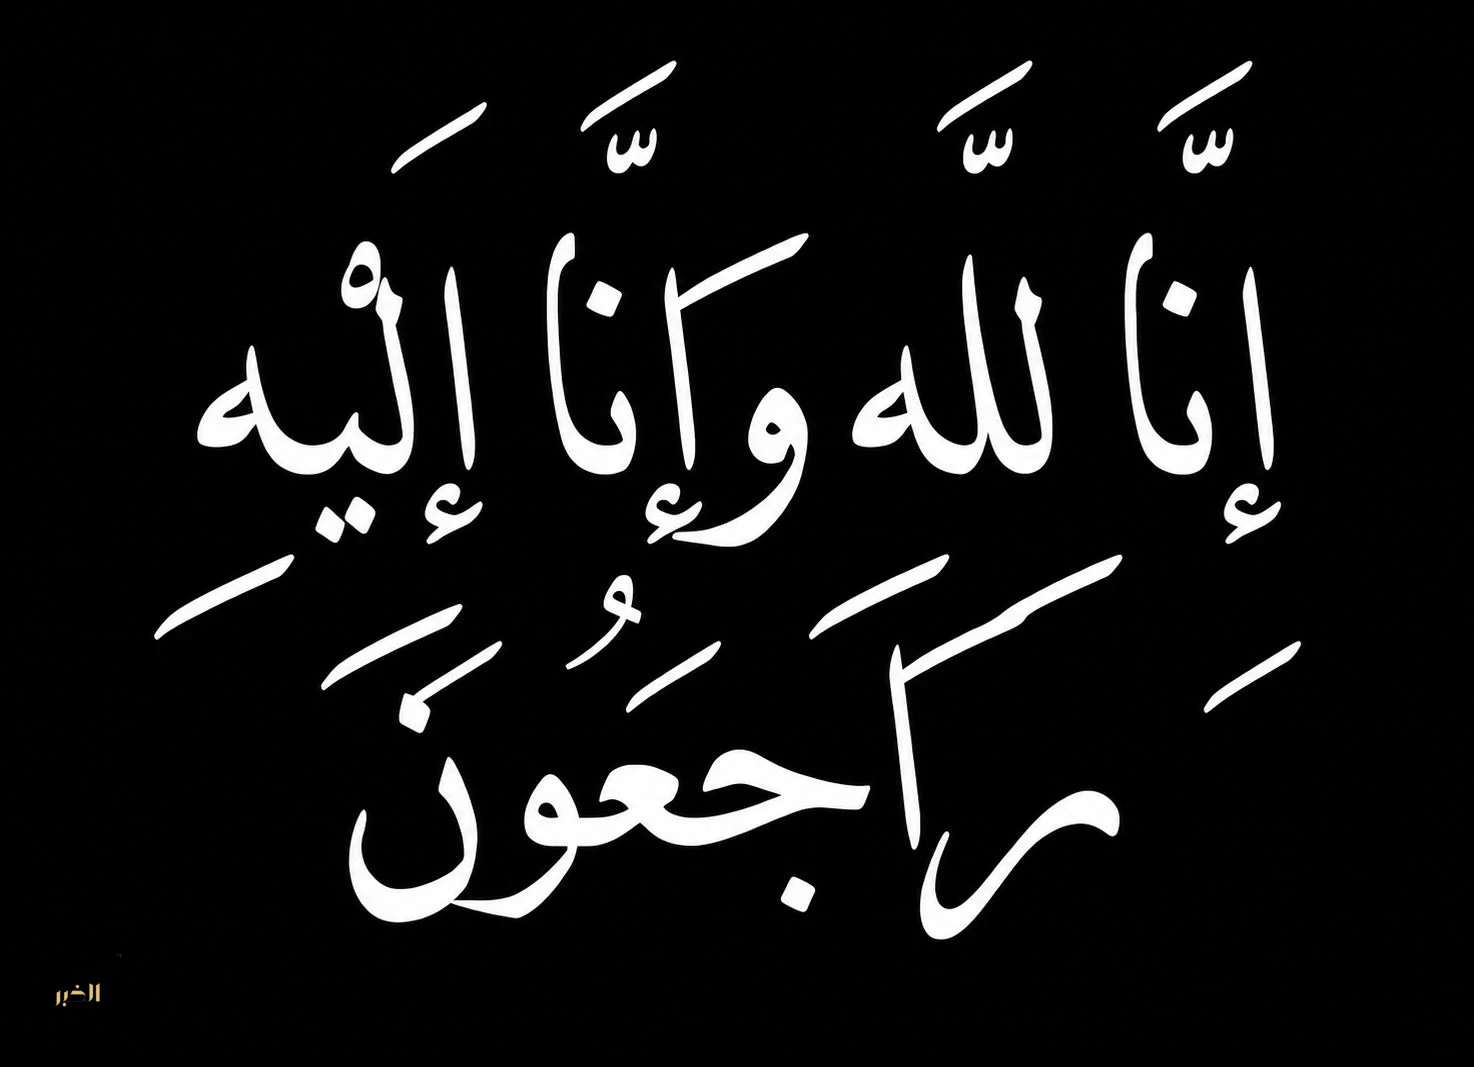 إِنَّا لِلَّهِ وَإِنَّا إِلَيْهِ
رَاجِعُونَ
الخبر